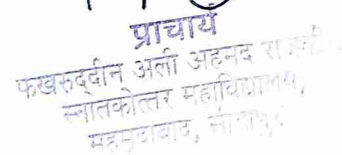 प्राचार्य
फखरुद्दीन अली अहमद
स्नातकोत्तर महाविद्यालय,
महमूदाबाद,